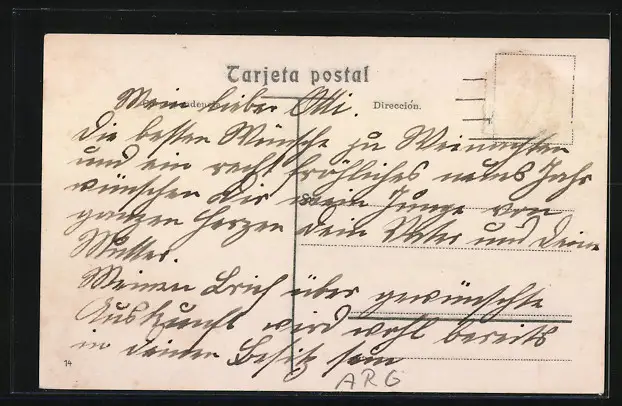 Tarjeta postal
Dirección.
Mein lieber Otti.
Die besten Wünsche zu Weinachten
und ein recht fröhliches neues Jahr
wünschen Dir mein Junge von
ganzen Herzen Dein Vater und Deine
Mutter.
Meinen Brief über gewünschte
Auskunft wird wohl bereits
in deinen Besitz sein
14
ARG